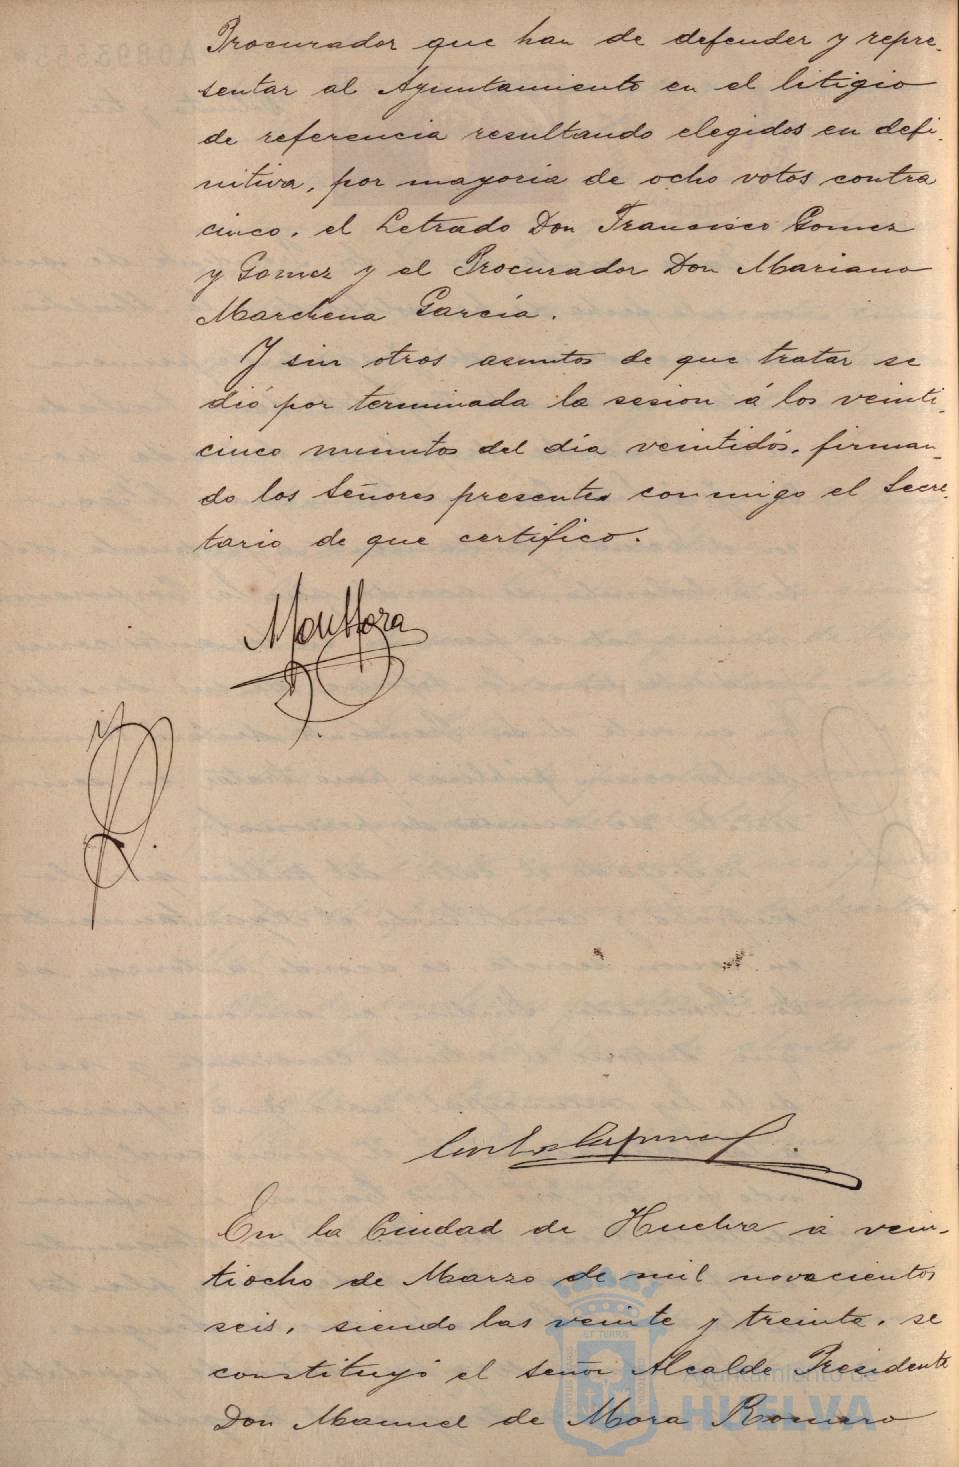 Procurador que han de defender y repre-
sentar al Ayuntamiento en el litigio
de referencia resultando elegidos en defi-
nitiva, por mayoria de ocho votos contra
cinco, el Letrado Don Francisco Gomez
y Gomez y el Procurador Don Mariano
Marchena García.
Y sin otros asuntos de que tratar se
dió por terminada la sesion á los veinti-
cinco minutos del día veintidós, firman-
do los Señores presentes conmigo el Secre-
tario de que certifico.
En la Ciudad de Huelva á vein-
tiocho de Marzo de mil novecientos
seis, siendo las veinte y treinta, se
constituyó el Señor Alcalde Presidente
Don Manuel de Mora Romero
Ayuntamiento de
HUELVA